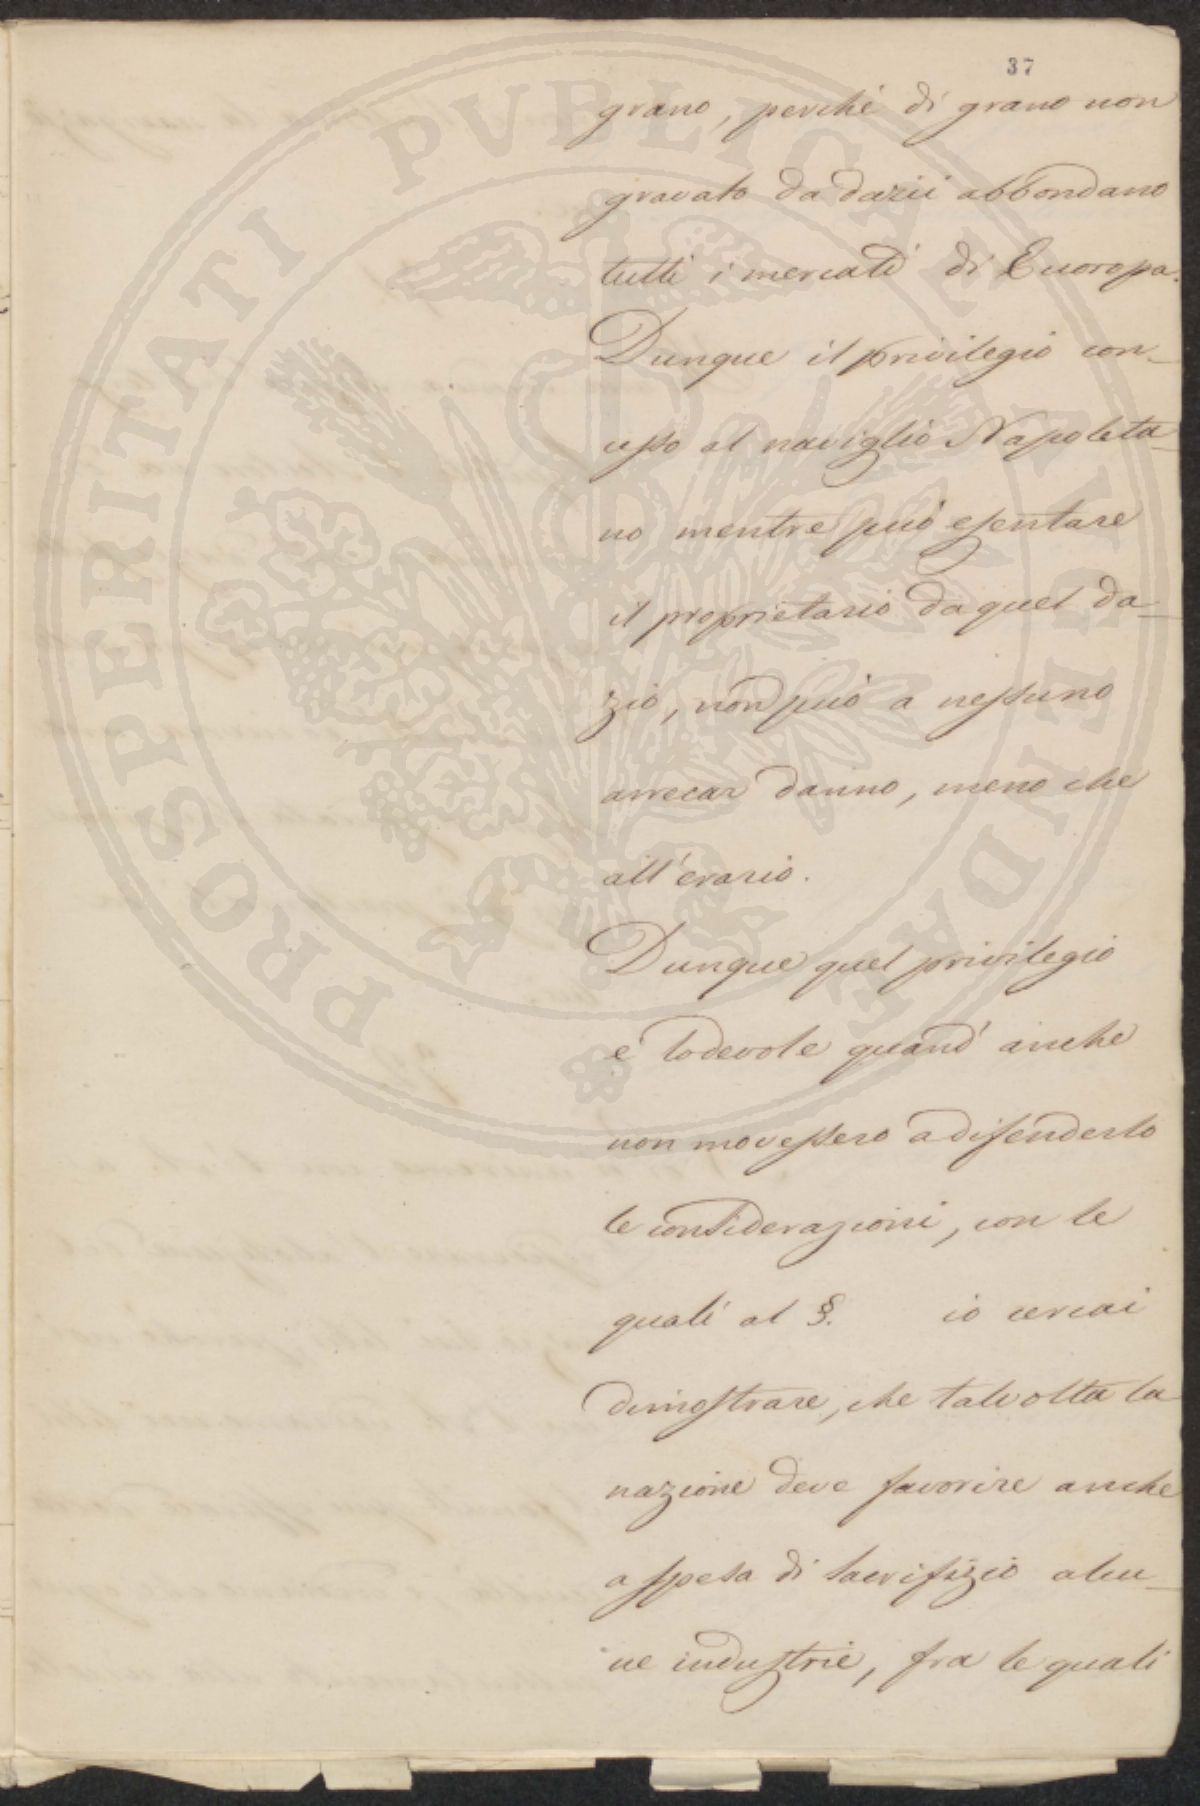 37
grano, perchè di grano non
gravato da dazii abbondano
tutti i mercati di Euoropa.
Dunque il privilegio con-
cesso al naviglio Napoleta-
no mentre può esentare
il proprietario da quel da-
zio, non può a nessuno
arrecar danno, meno che
all'erario.
Dunque quel privilegio
e lodevole quand' anche
non movessero a difenderlo
le considerazioni, con le
quali al §. io cercai
dimostrare, che talvolta la
nazione deve favorire anche
a spesa di sacrifizio alcu-
ne industrie, fra le quali
PROSPERITATI PVBLICAE AVGENDAE